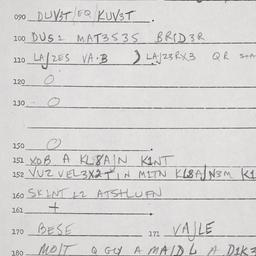 090 DUVST/EQ/KUVST.
100 DUS2 MAT3S3S BRID3R
110 LA/ZES VA·B ) LA/Z3RX3 QR
120 O
130 O
150 O
151 XOB A KL8A/N K1NT
152 VUZ VEL3X2T/N MITN KL8A/N3M K1
160 SKLNT 12 ATSHLUFN
161 +
170 BESE 171 VA/LE
180 MO/T Q GLY A MA/D L A D1K3